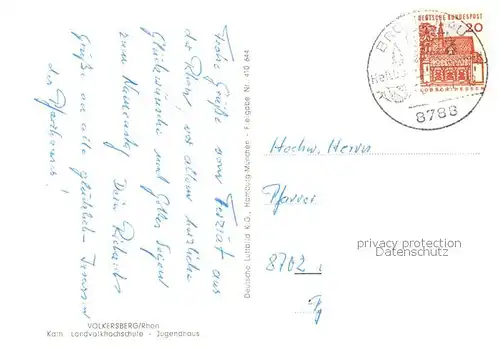 Frohe Grüße vom Terziat aus
der Rhön, vor allem herzliche
Glückwünsche und Gottes Segen
zum Namenstag Dein Richard
Grüße an alle glücklich-
der Pfarrhaus!
VOLKERSBERG/Rhön
Kath. Landvolkhochschule - Jugendhaus
Deutsche Luftbild K.G., Hamburg/München - Freigabe Nr. 410 644
DEUTSCHE BUNDESPOST
20
LORSCH/HESSEN
BRÜ
8788
Hochw. Herrn
Pfarrer
8702
privacy protection
Datenschutz